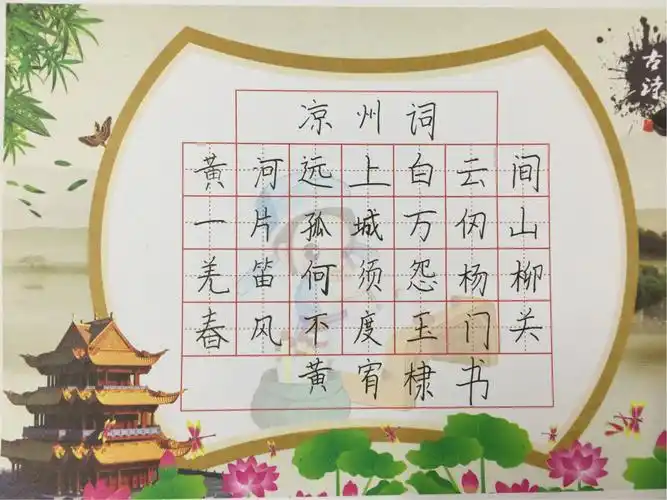 古诗
凉州词
黄河远上白云间
一片孤城万仞山
羌笛何须怨杨柳
春风不度玉门关
黄宥棣书